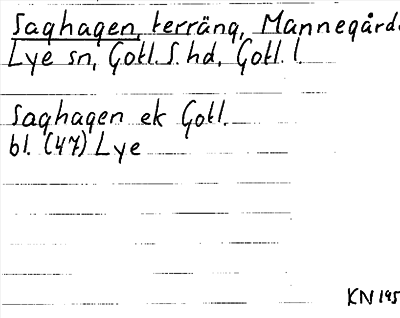 Saghagen, terräng, Mannegård.
Lye sn, Gotl. S. hd, Gotl. l.
Saghagen ek Gotl.
bl. (47) Lye
KN 195